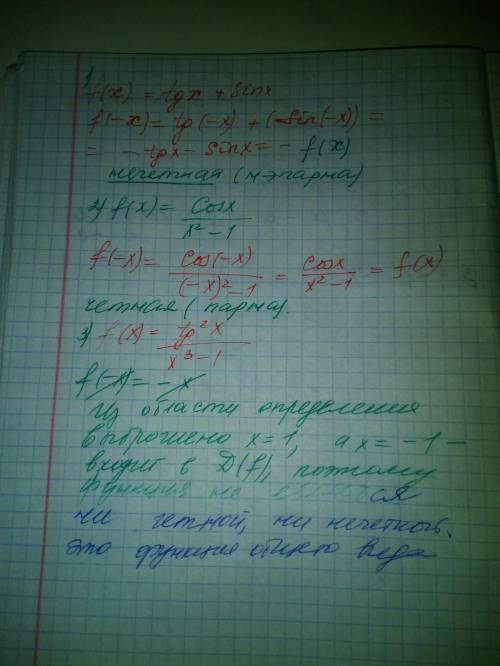 1)
f(x) = tgx + sinx
f(-x) = tg(-x) + (sin(-x)) =
= -tgx - sinx = - f(x)
нечетная (нэпарна)
2) f(x) = cosx / x² - 1
f(-x) = cos(-x) / (-x)² - 1 = cosx / x² - 1 = f(x)
четная (парна)
3) f(x) = tg²x / x³ - 1
f(-x) = -x
Из области определения
выброшено x = 1, а x = -1 -
входит в D(f), поэтому
функция не является
ни четной, ни нечетной.
это функция общего вида